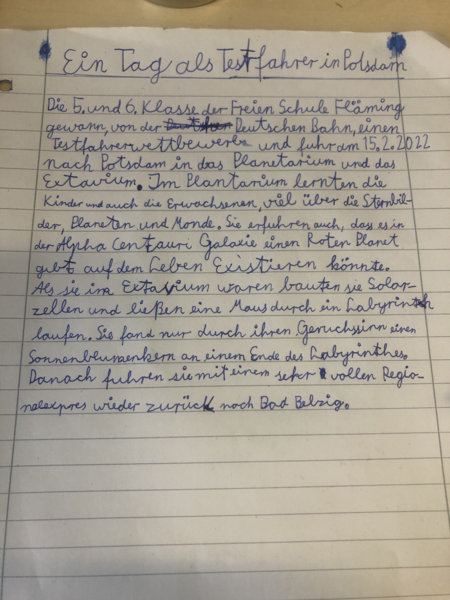 Ein Tag als Testfahrer in Potsdam
Die 5. und 6. Klasse der Freien Schule Fläming
gewann, von der Deutschen Bahn, einen
Testfahrerwettbewerb und fuhr am 15.2.2022
nach Potsdam in das Planetarium und das
Extavium. Im Plantarium lernten die
Kinder und auch die Erwachsenen, viel über die Sternbil-
der, Planeten und Monde. Sie erfuhren auch, dass es in
der Alpha Centauri Galaxie einen Roten Planet
gibt auf dem Leben Existieren könnte.
Als sie im Extavium waren bauten sie Solar-
zellen und ließen eine Maus durch ein Labyrinth
laufen. Sie fand nur durch ihren Geruchssinn einen
Sonnenblumenkern an einem Ende des Labyrinthes.
Danach fuhren sie mit einem sehr vollen Regio-
nalexpres wieder zurück nach Bad Belzig.